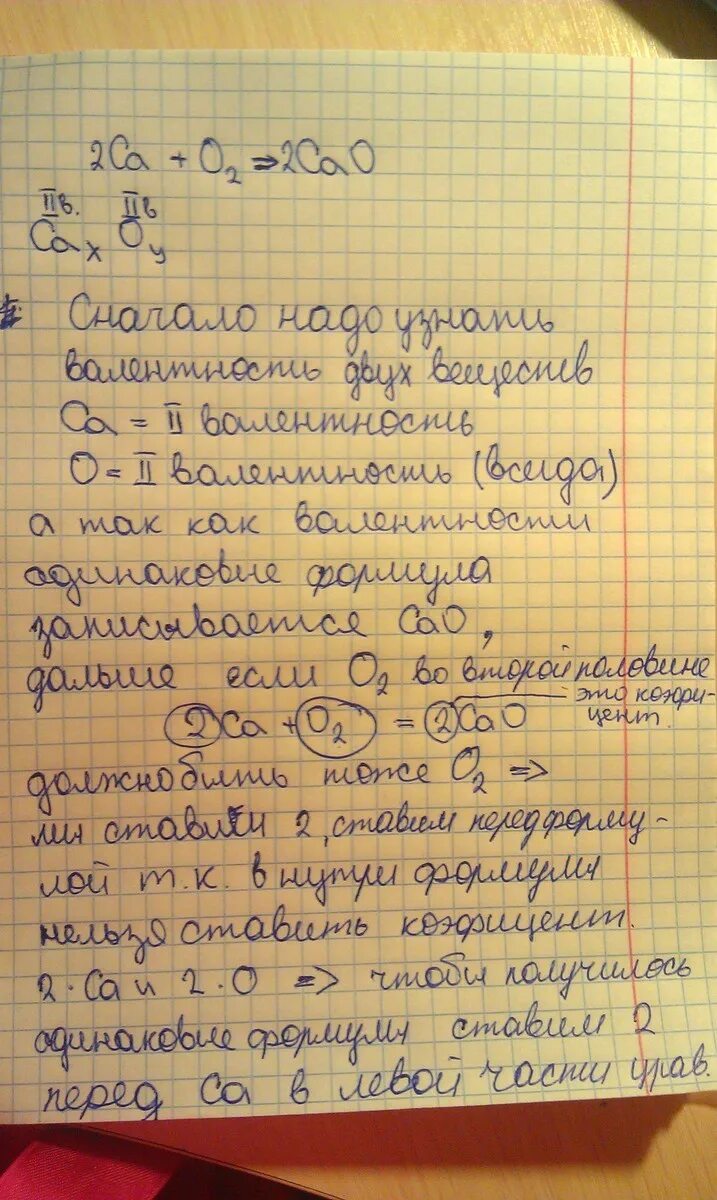 2Ca + O₂ ⇒ 2CaO
IIв. IIв
Caₓ Oᵧ
Сначало надо узнать
валентность двух веществ
Ca = II валентность
O = II валентность (всегда)
а так как валентности
одинаковые формула
записывается CaO,
дальше если O₂ во второй половине
это коэфи-
циент.
2Ca + O₂ = 2CaO
должно быть тоже O₂ ⇒
мы ставим 2, ставим перед форму-
лой т.к. в нутри формулы
нельзя ставить коэфицент.
2·Ca и 2·O ⇒ чтобы получилось
одинаковые формулы ставим 2
перед Ca в левой части урав.